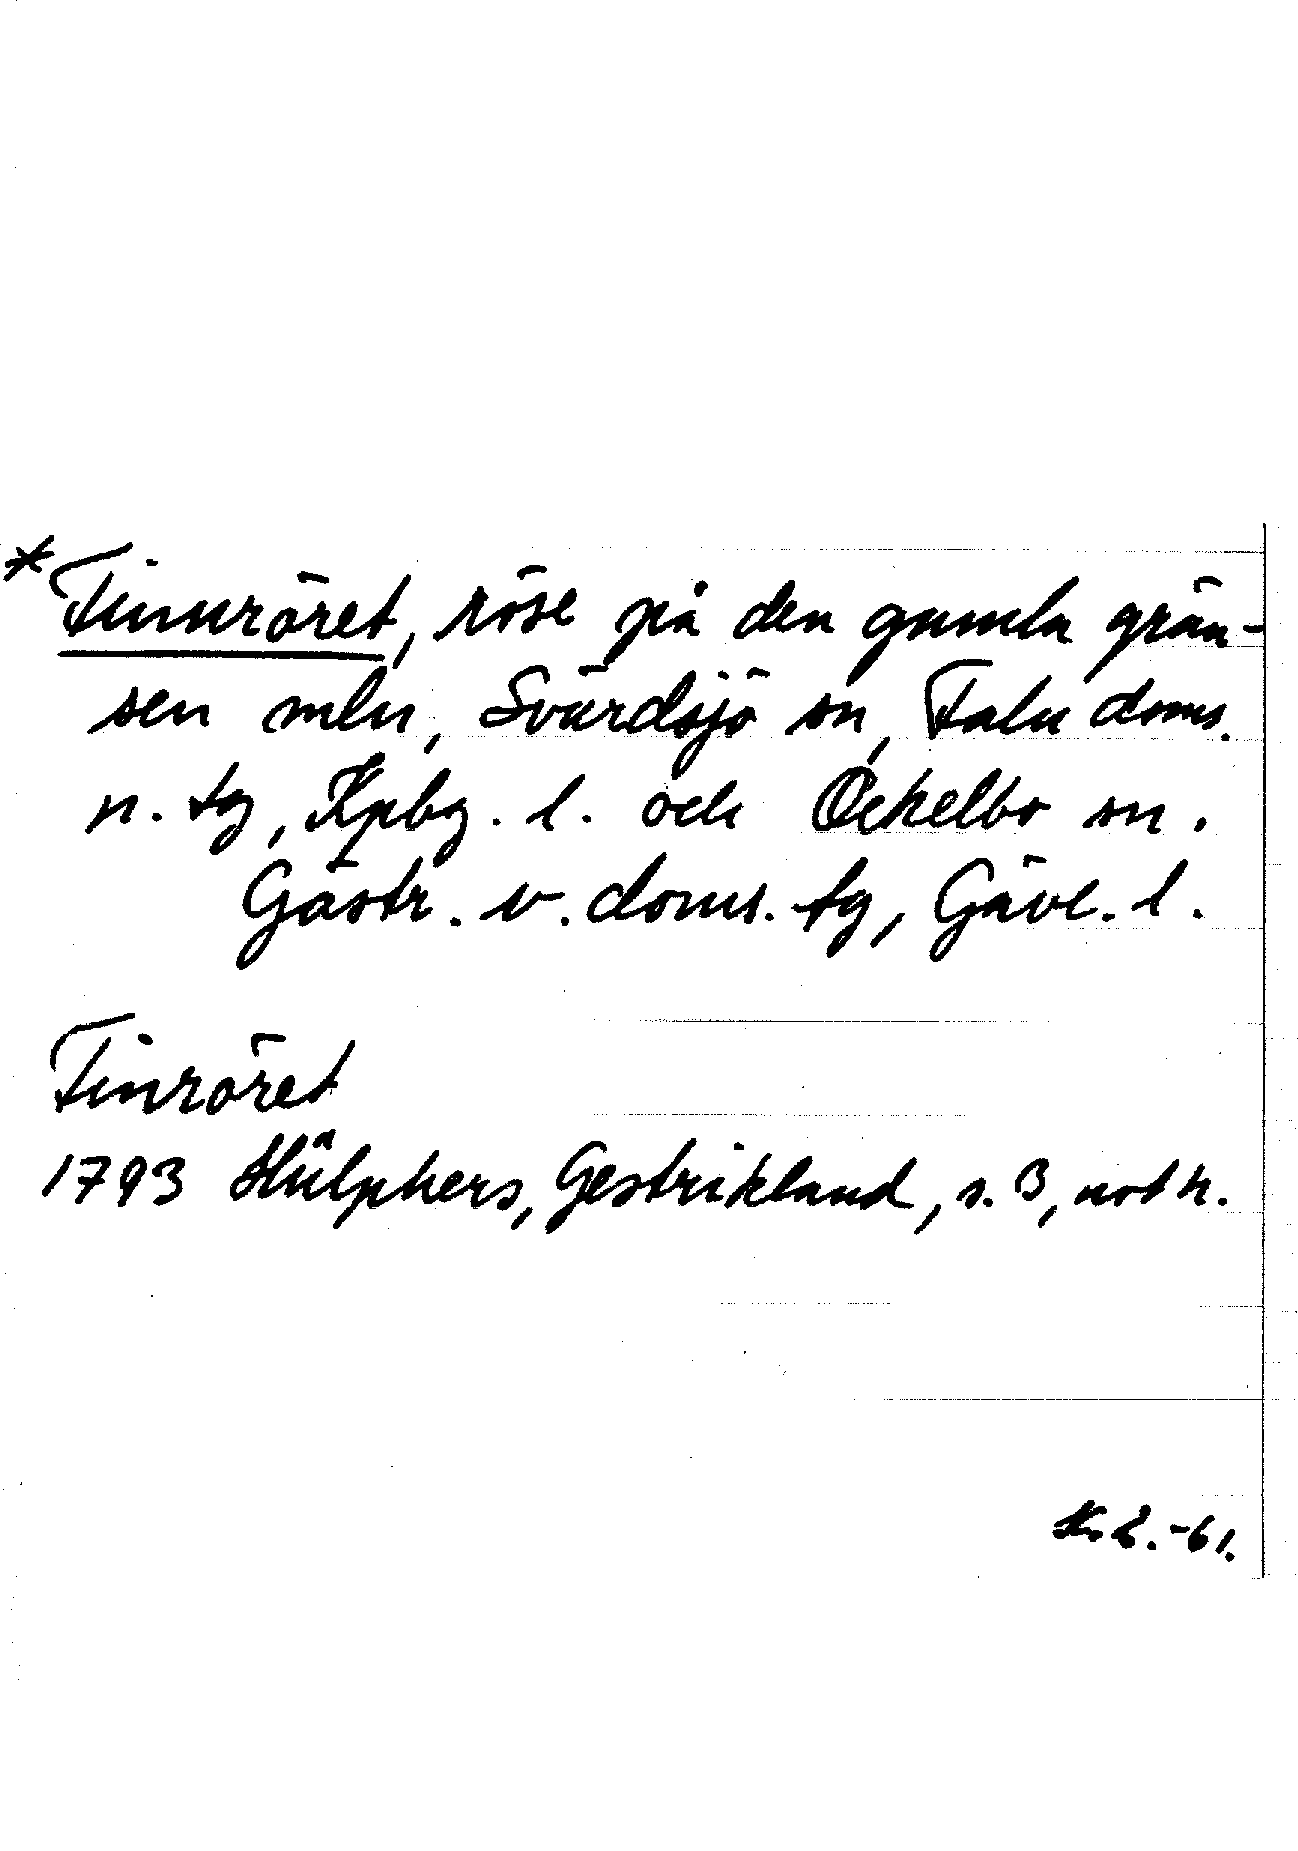 *Finnröret, röse på den gamla grän-
sen mln, Svärdsjö sn, Falu doms.
n. tg, Kpbg. l. och Ockelbo sn.
Gästr. v. doms. tg, Gävl. l.
Finröret
1793 Hülphers, Gestrikland, s. 3, not r.
-61.